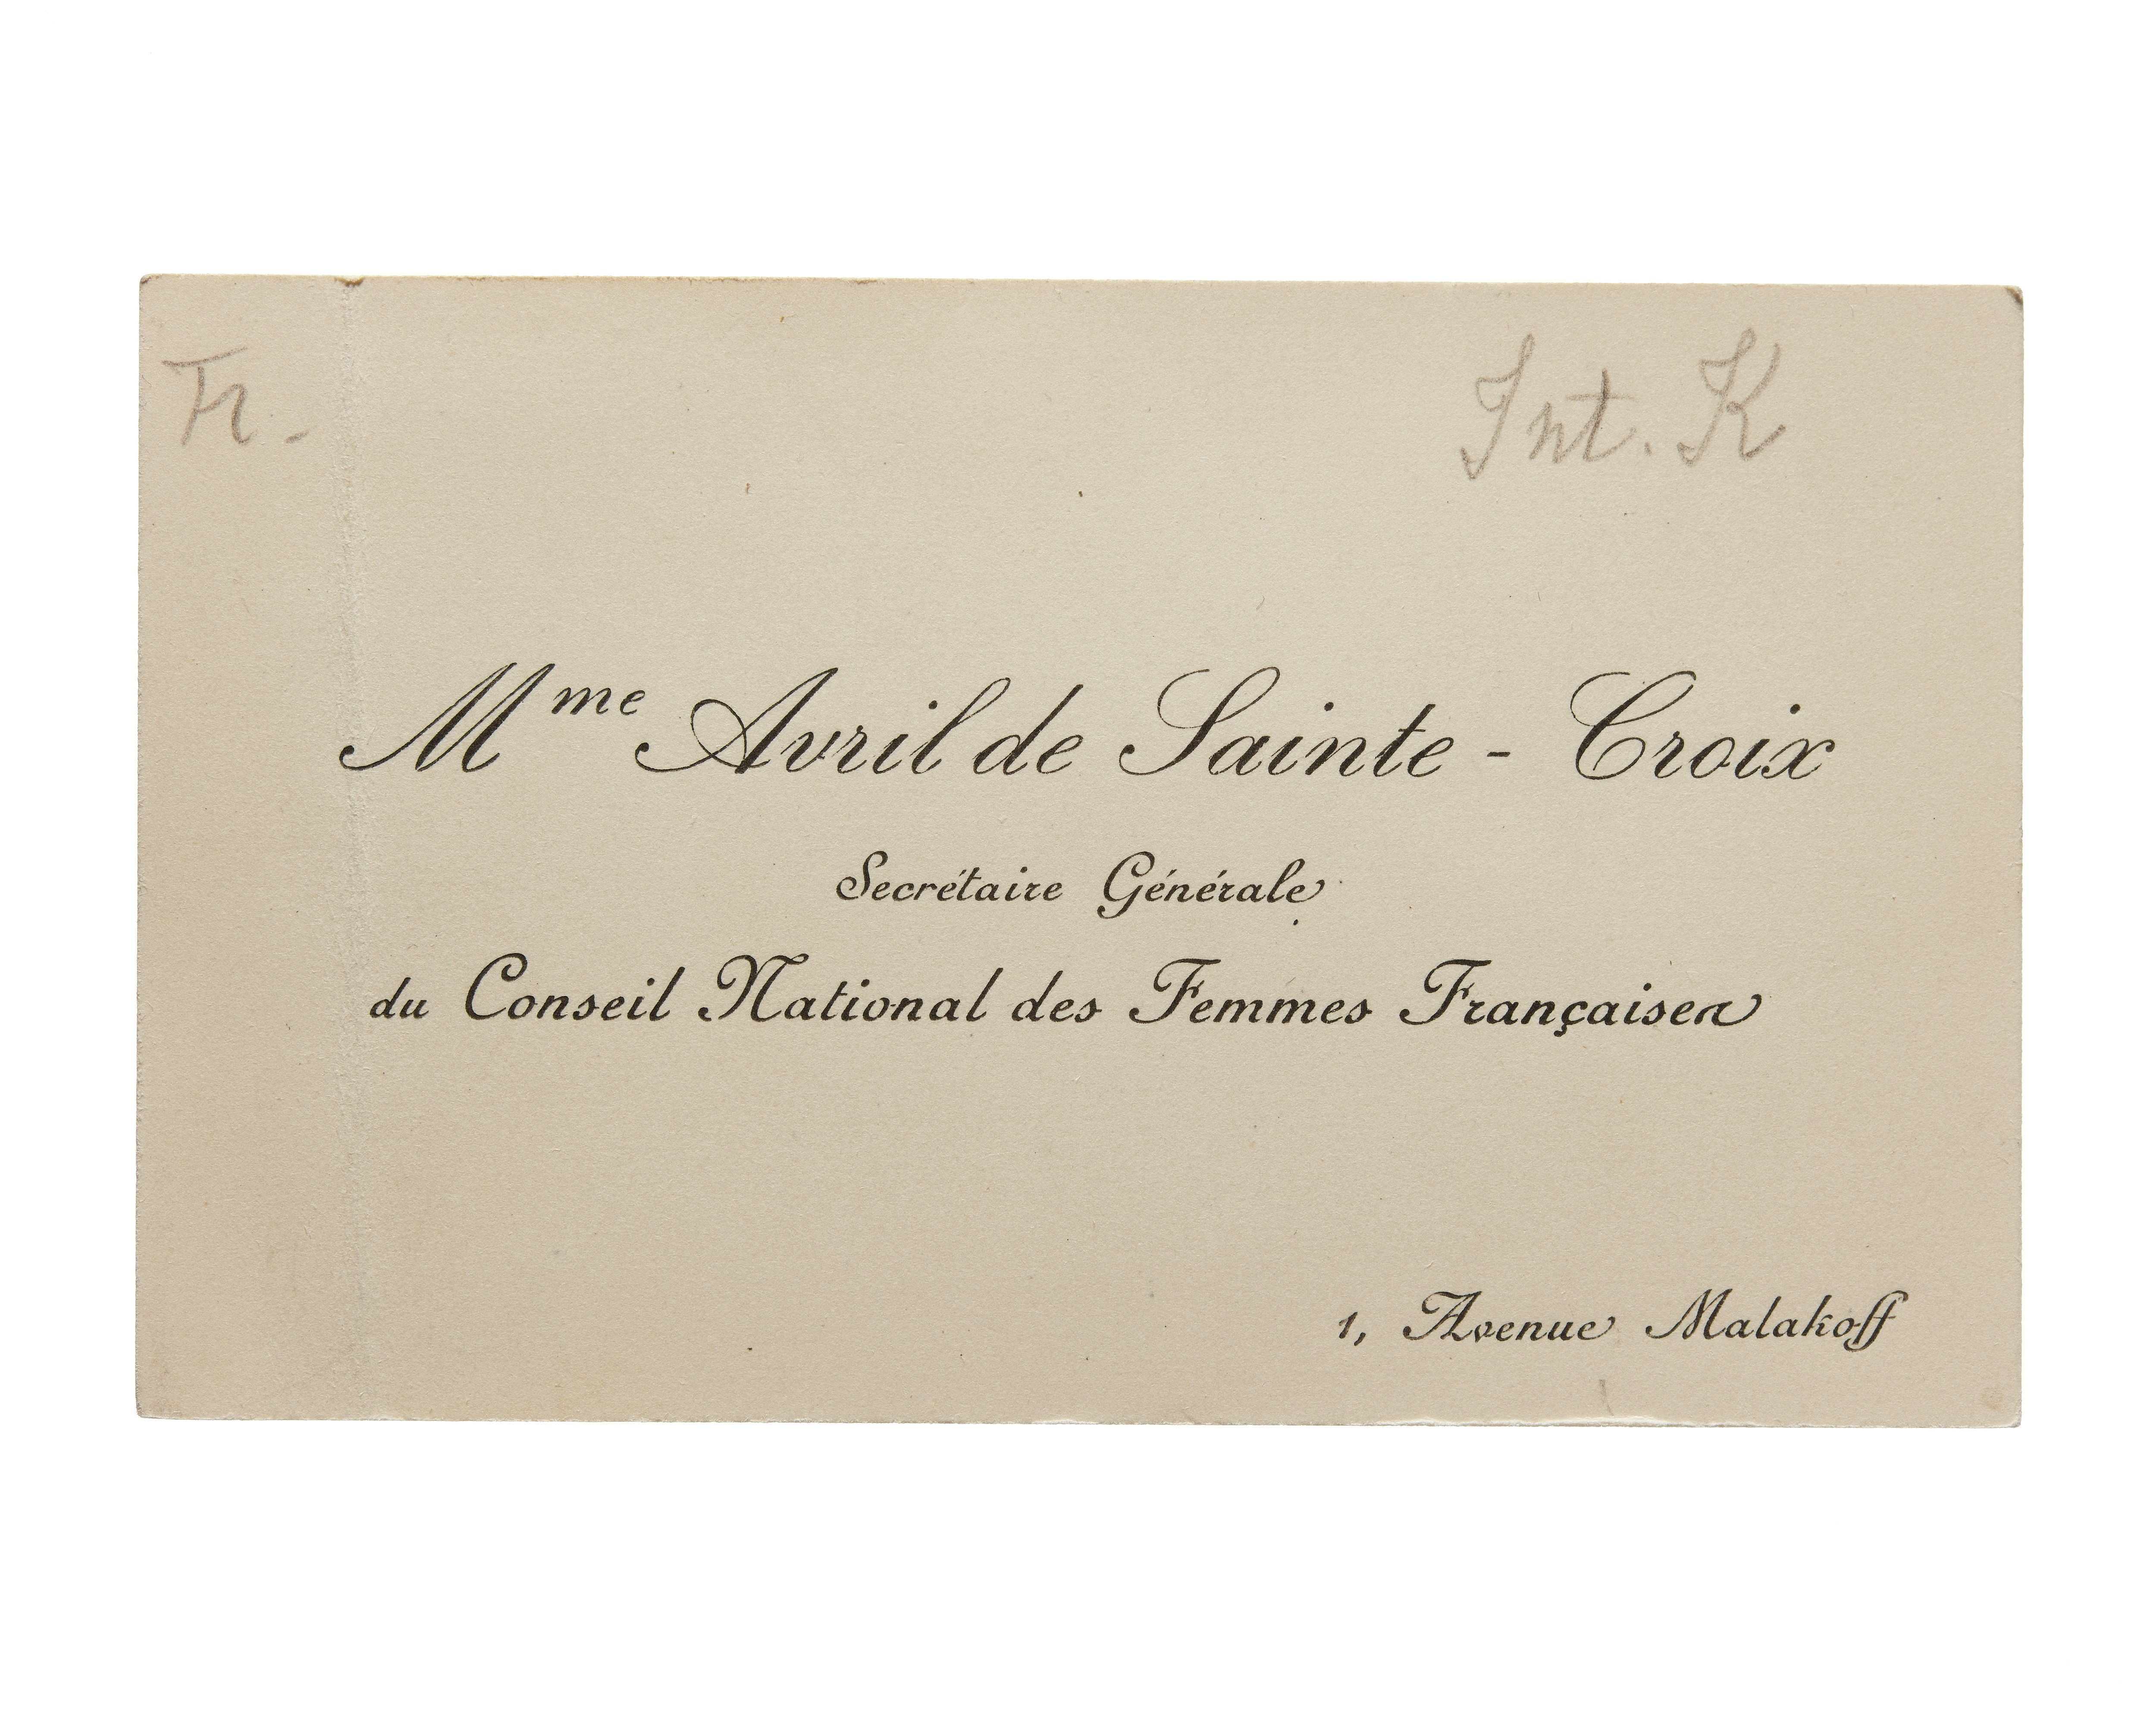 Fr.
Int. K
Mme Avril de Sainte - Croix
Secrétaire Générale
du Conseil National des Femmes Françaises
1, Avenue Malakoff